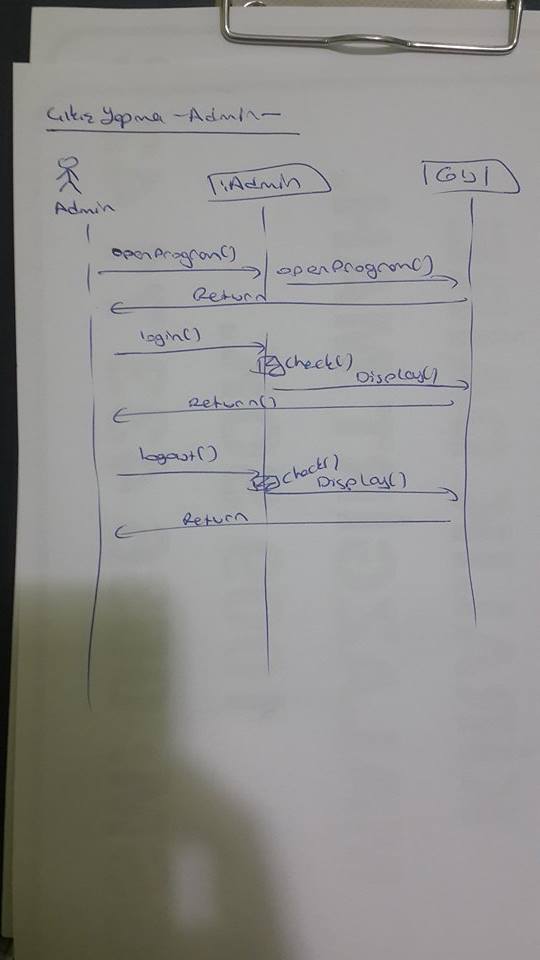 Çıkış Yapma -Admin-
Admin
:Admin
GUI
openProgram()
openProgram()
Return
login()
check()
Display()
Return()
logout()
check()
Display()
Return